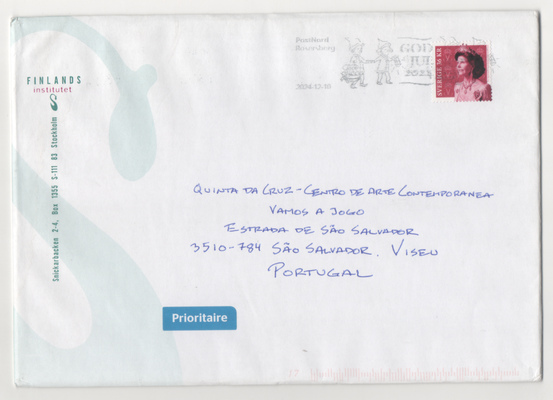 FINLANDS
institutet
Snickarbacken 2-4, Box 1355 S-111 83 Stockholm
PostNord
GOD
JUL
SVERIGE 36 KR
QUINTA DA CRUZ - CENTRO DE ARTE CONTEMPORANEA
VAMOS A JOGO
ESTRADA DE SÃO SALVADOR
3510-784 SÃO SALVADOR. VISEU
PORTUGAL
Prioritaire